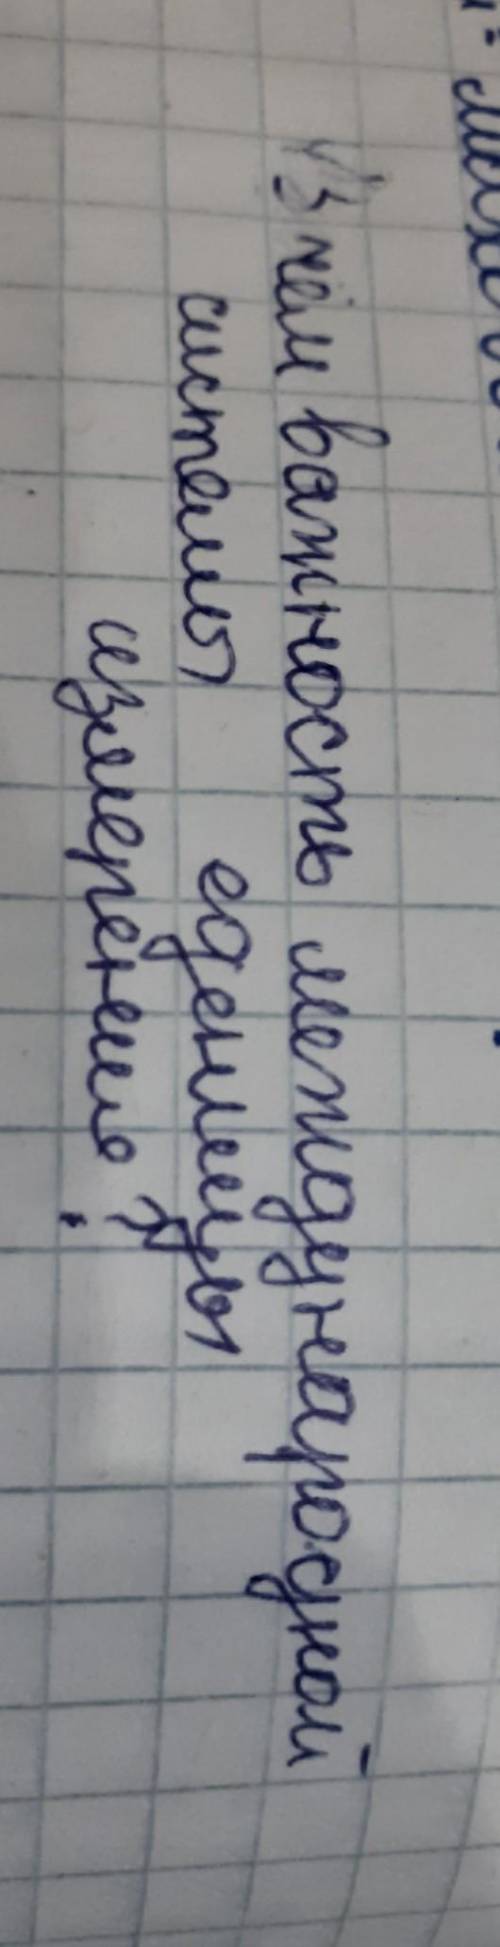 В чём важность международной
системы еденицы
измерения?